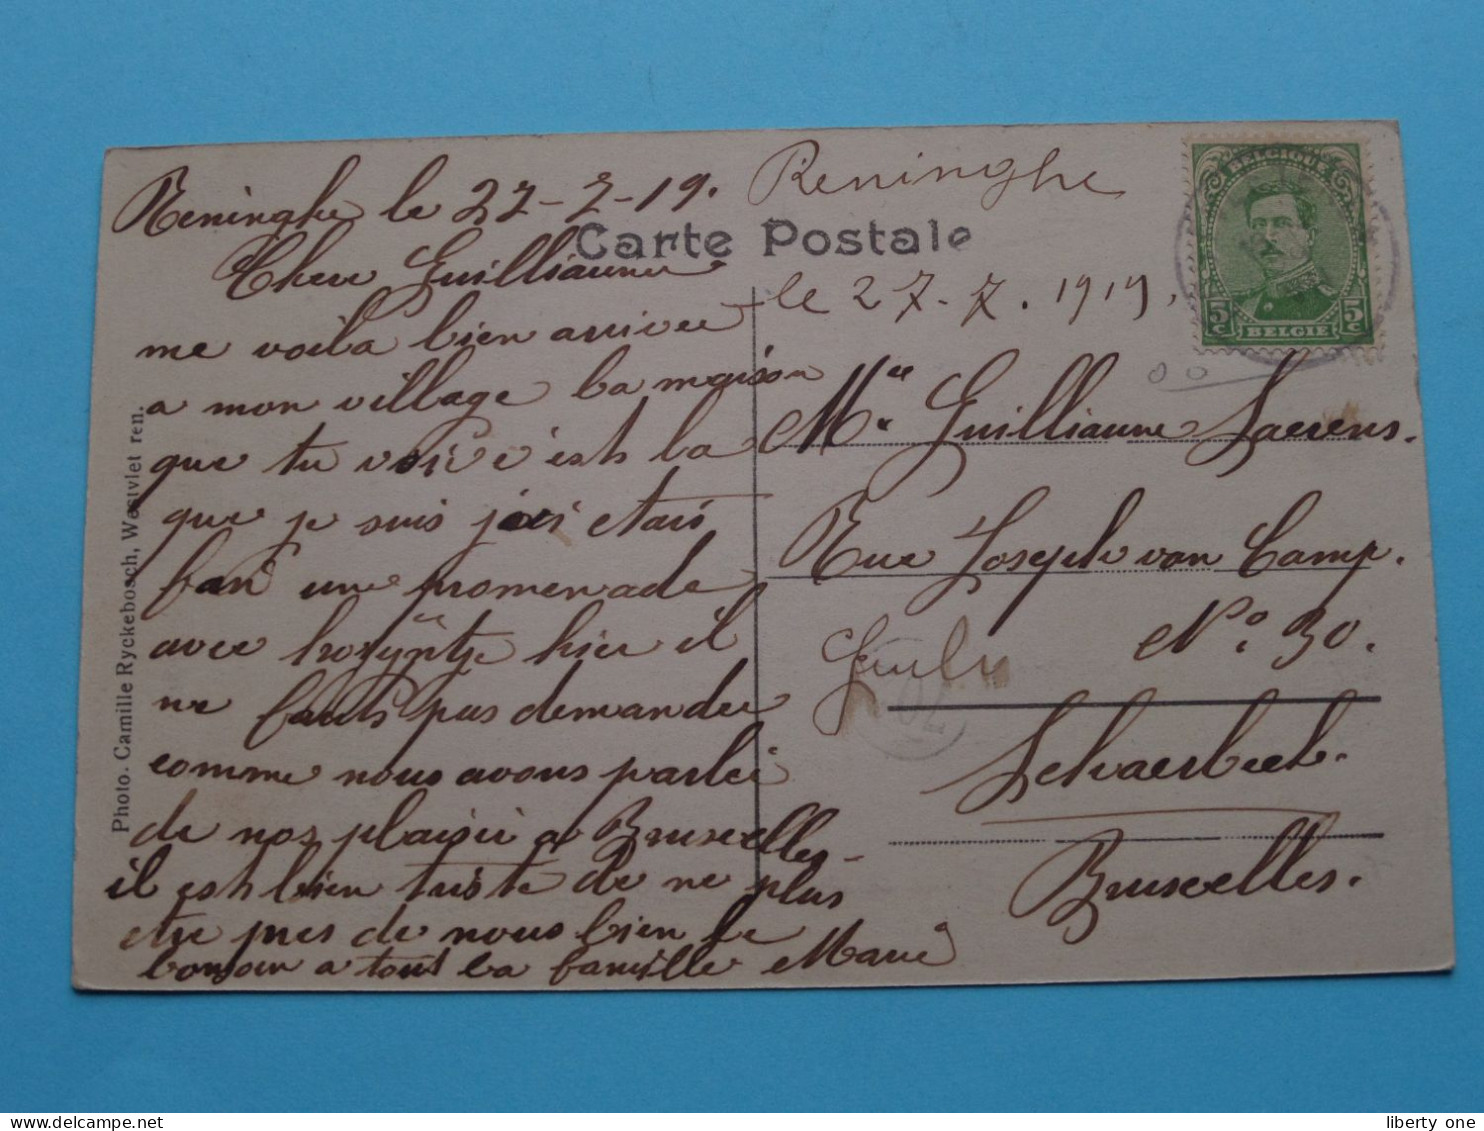 Reninghe le 27-7-19.
Chere Guilliaume
me voila bien arrivee
a mon village la maison
que tu vois c'est la
que je suis jai etais
fair une promenade
avec hier il
ne fauts pas demandee
comme nous avons parlei
de nos plaisir a Bruxelles
il est bien triste de ne plus
etre pres de nous bien le
bonjour a tous la famille Marie
Reninghe
Carte Postale
le 27-7.1919.
Mr Guilliaume Saerens.
Rue Joseph van Camp.
No. 30.
Schaerbeek.
Bruxelles.
BELGIQUE
5c 5c
BELGIE
Photo. Camille Ryckebosch, Westvlet ren.
liberty one